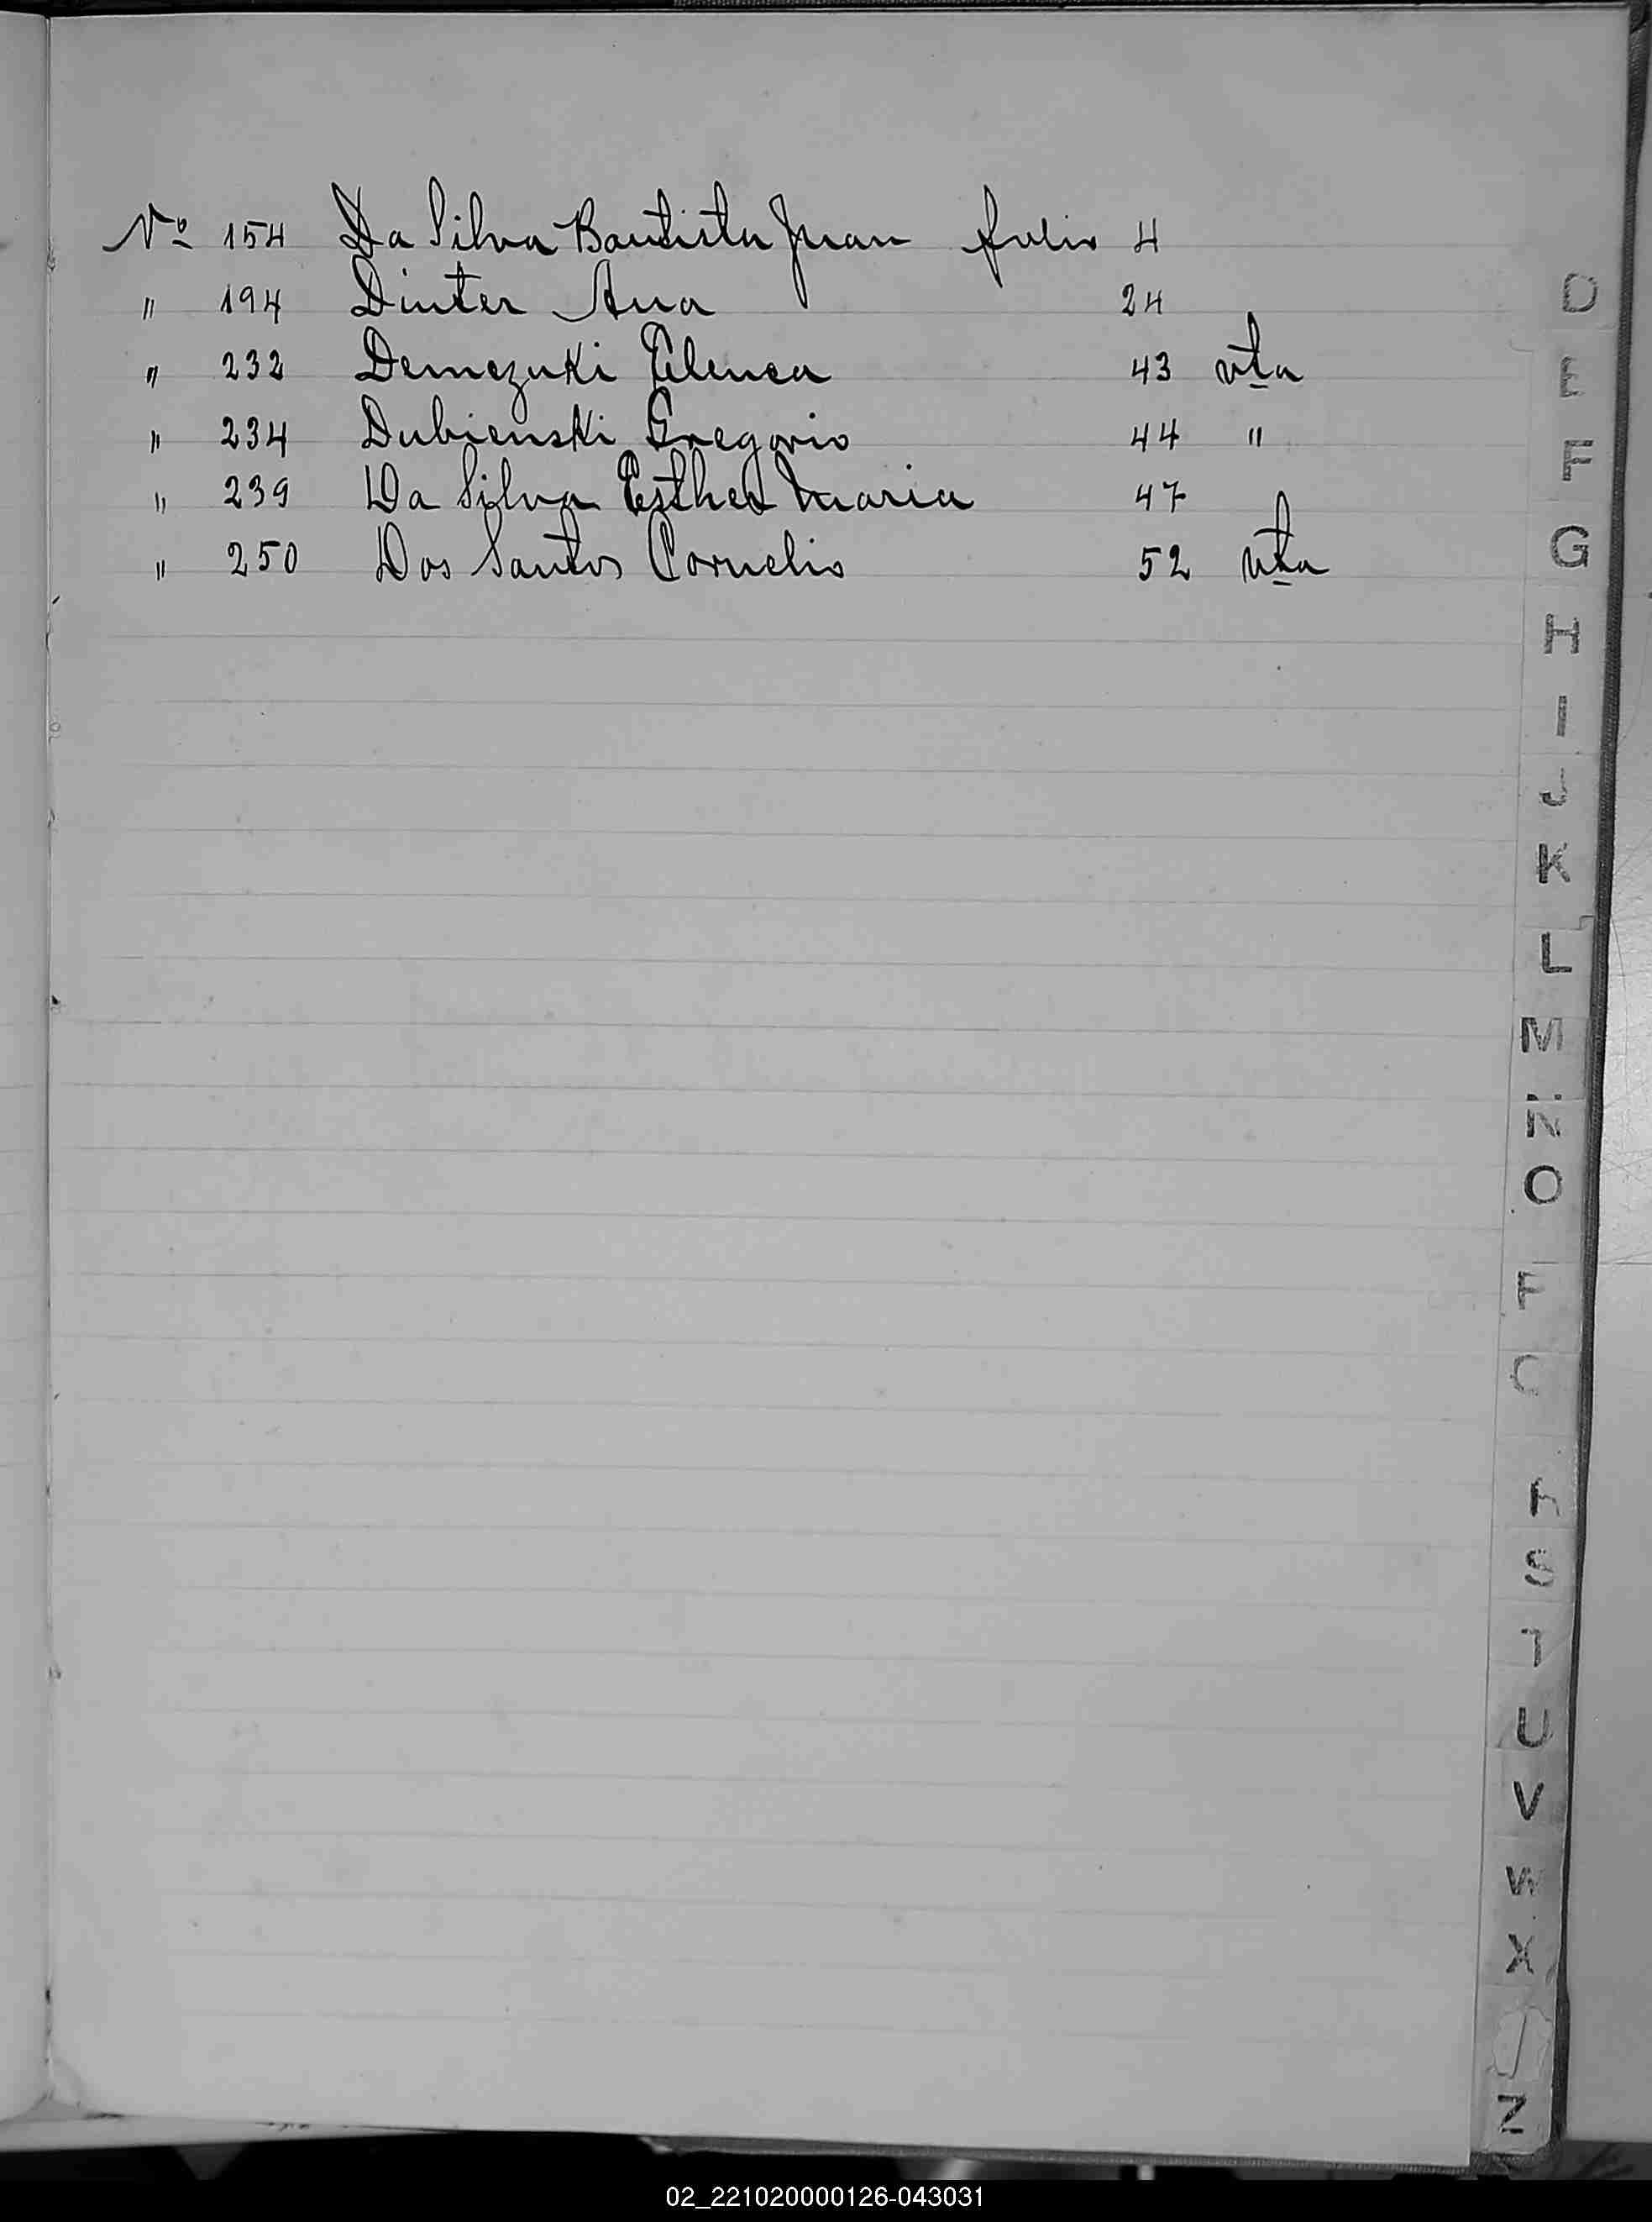 Nº 154 Da Silva Bautista Juan folio 4
" 194 Dinter Ana 24
" 232 Demczuki Elena 43 vta
" 234 Dubienski Gregorio 44 "
" 239 Da Silva Esther Maria 47
" 250 Dos Santos Cornelio 52 vta
D
E
F
G
H
I
J
K
L
M
N
O
S
T
U
V
W
X
Z
02_221020000126-043031